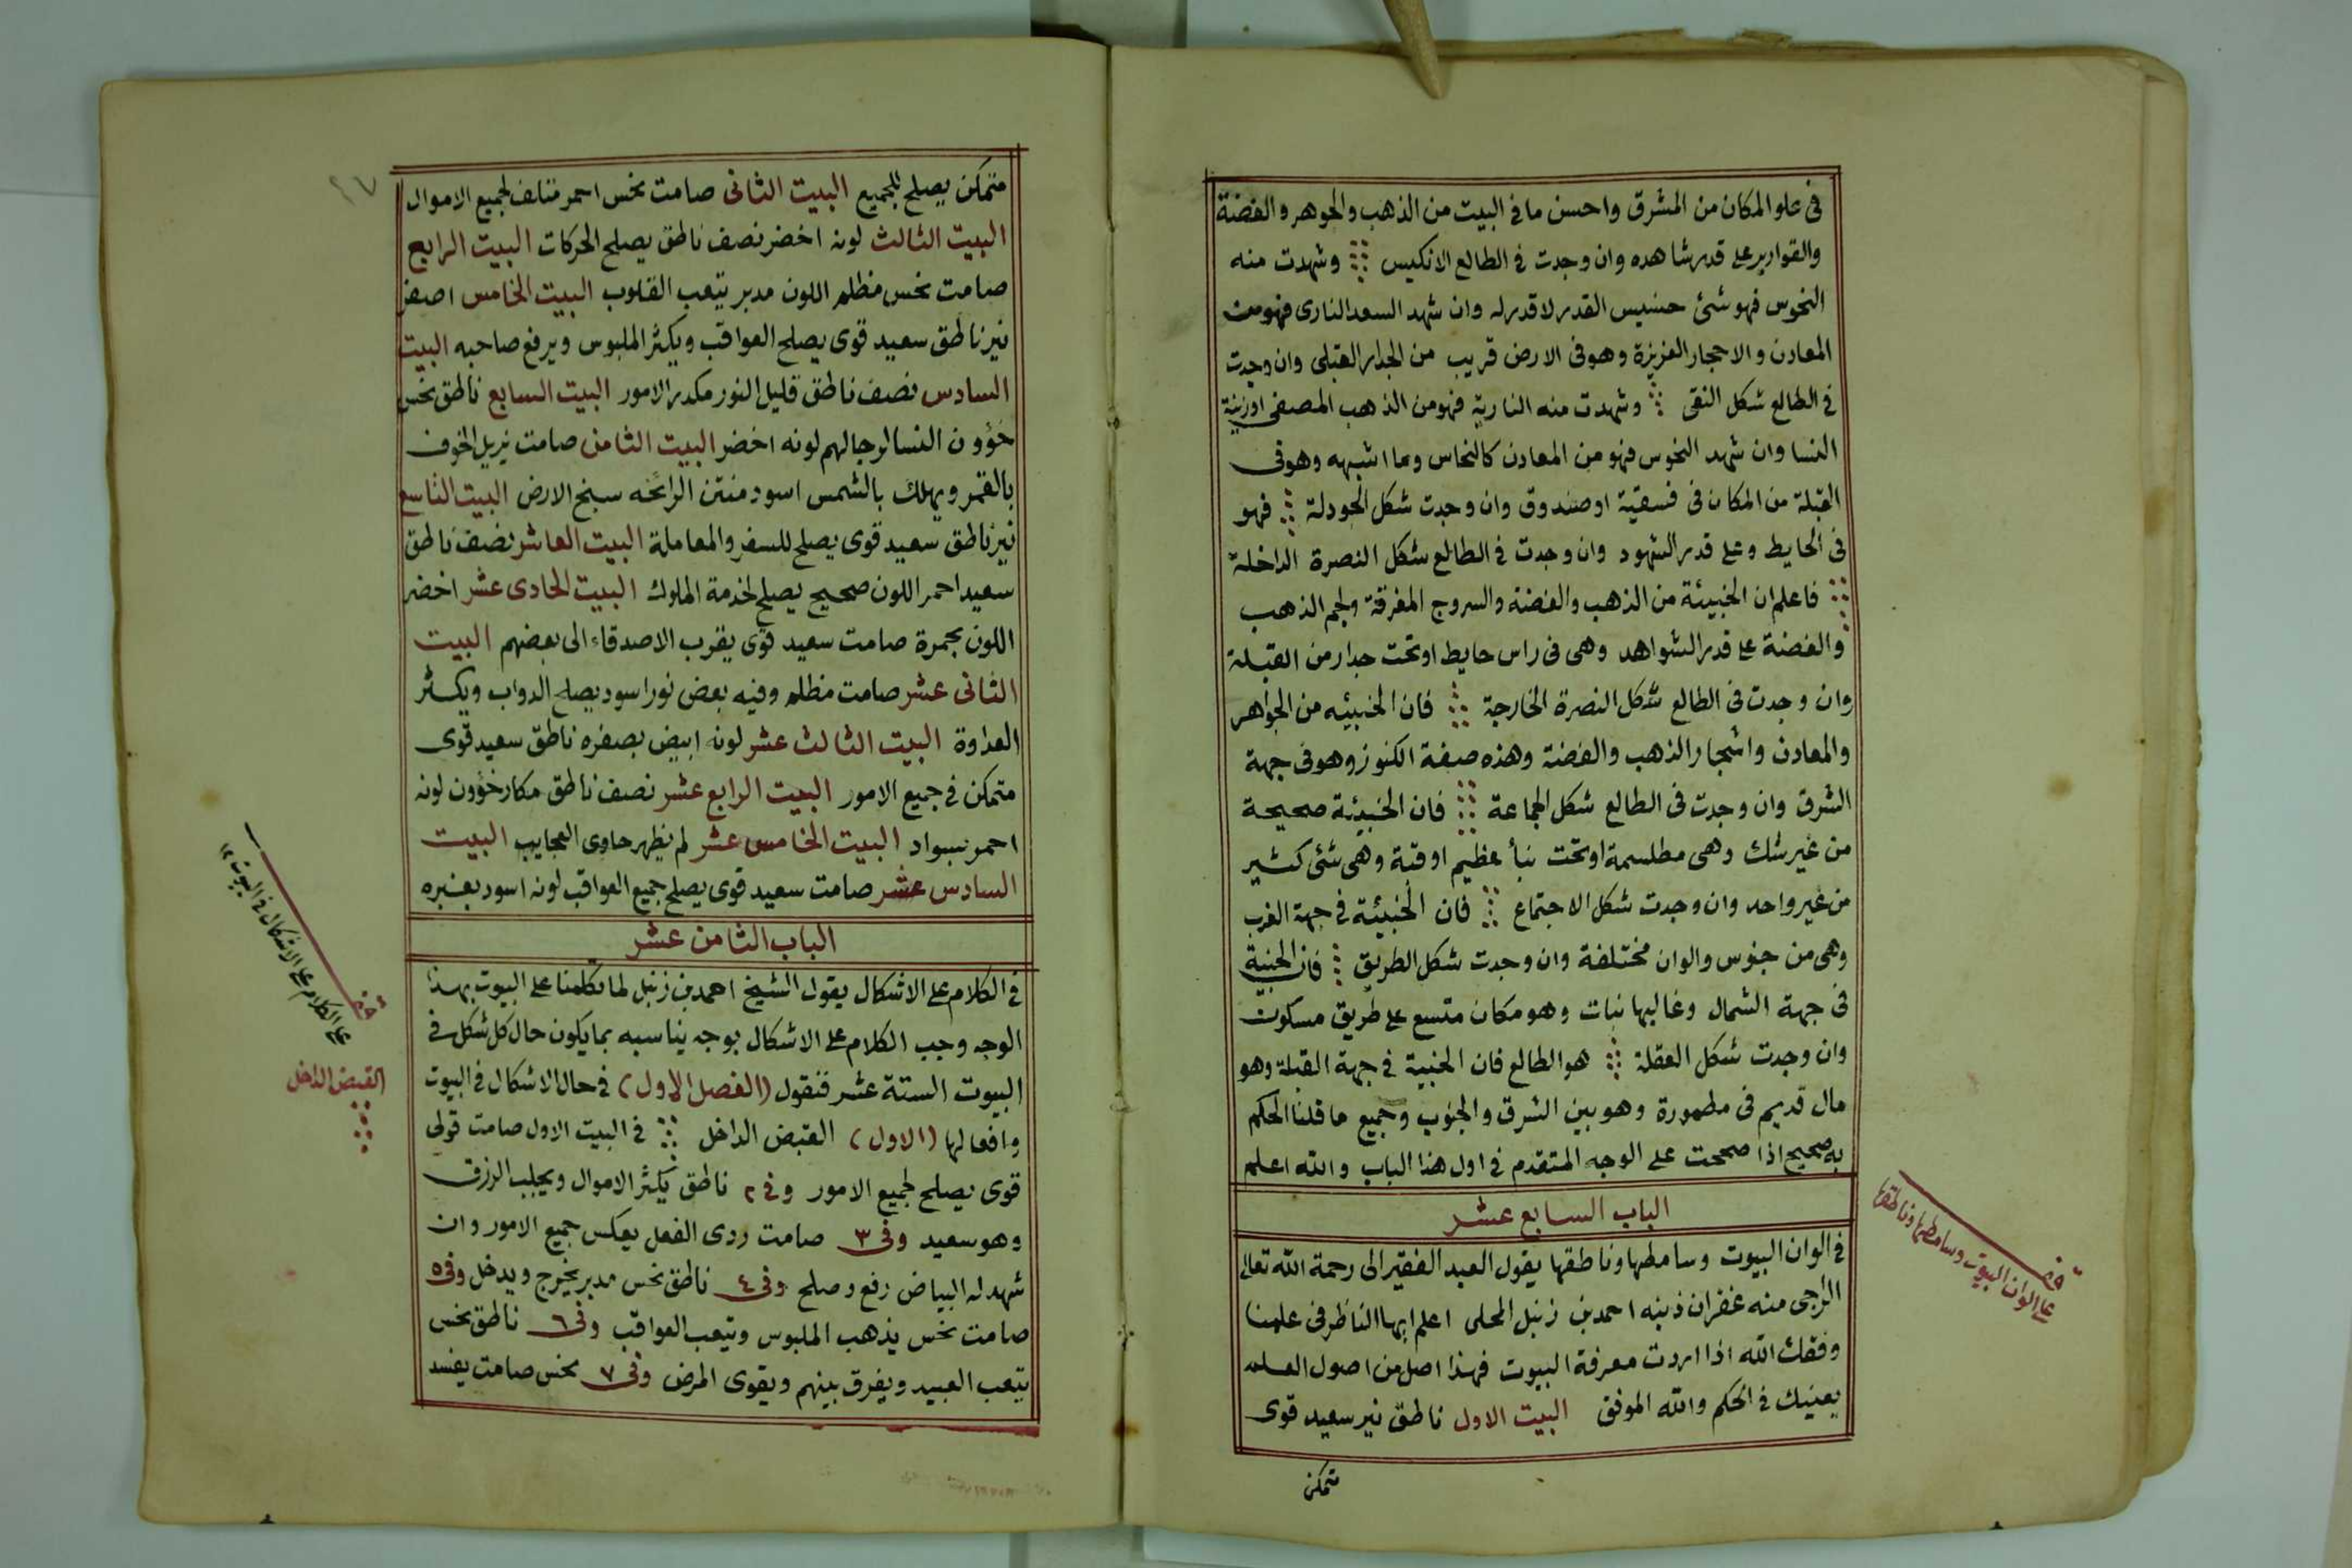 في علو المكان من المشرق واحسن ما في البيت من الذهب والجوهر والفضة
والقوارير على قدر شاهده وان وجدت في الطالع الانكيس وشهدت منه
النحوس فهو شئ خسيس القدر لا قدر له وان شهد السعد النارى فهو من
المعادن والاحجار العزيزة وهو فى الارض قريب من الجدار القبلى وان وجدت
في الطالع شكل النقى وشهدت منه النارية فهو من الذهب المصفى او زينة
النسا وان شهد النحوس فهو من المعادن كالنحاس وما اشبهه وهو فى
القبلة من المكان فى فسقية او صندوق وان وجدت شكل الجودلة فهو
فى الحايط وعلى قدر الشهود وان وجدت في الطالع شكل النصرة الداخلة
فاعلم ان الخبيئة من الذهب والفضة والسروج المغرقة ولجم الذهب
والفضة على قدر الشواهد وهى فى راس حايط او تحت جدار من القبلة
وان وجدت فى الطالع شكل النصرة الخارجة فان الخبيئه من الجواهر
والمعادن واشجار الذهب والفضة وهذه صفة الكنوز وهو فى جهة
الشرق وان وجدت فى الطالع شكل الجماعة فان الخبيئة صحيحة
من غير شك وهى مطلسمة او تحت نبأ عظيم او قتة وهى شئ كثير
من غير واحد وان وجدت شكل الاجتماع فان الخبيئة في جهة الغرب
وهى من جنوس والوان مختلفة وان وجدت شكل الطريق فان الخبية
فى جهة الشمال وغاليها نبات وهو مكان متسع على طريق مسكون
وان وجدت شكل العقلة هو الطالع فان الخبية في جهة القبلة وهو
مال قديم فى مطمورة وهو بين الشرق والجنوب وجميع ما قلنا الحكم
به صحيح اذا صححت على الوجه المتقدم في اول هذا الباب والله اعلم
الباب السابع عشر
في الوان البيوت وسامطها وناطقها يقول العبد الفقير الى رحمة الله تعالى
الراجى منه غفران ذنبه احمد بن زنبل المحلى اعلم ايها الناظر فى علمنا
وفقك الله اذا اردت معرفة البيوت فهذا اصل من اصول العلم
يعنيك في الحكم والله الموفق البيت الاول ناطق نير سعيد قوى
متمكن
قف
على الوان البيوت وسامطها وناطقها
متمكن يصلح للجميع البيت الثانى صامت نحس احمر متالف لجميع الاموال
البيت الثالث لونه اخضر نصف ناطق يصلح الحركات البيت الرابع
صامت نحس مظلم اللون مدبر يتعب القلوب البيت الخامس اصفر
نير ناطق سعيد قوى يصلح العواقب ويكثر الملبوس ويرفع صاحبه البيت
السادس نصف ناطق قليل النور مكدر الامور البيت السابع ناطق نحس
خؤون النسا لرجالهم لونه اخضر البيت الثامن صامت يزيل الخوف
بالقمر ويهلك بالشمس اسود منتن الرائحه سبخ الارض البيت التاسع
نير ناطق سعيد قوى يصلح للسفر والمعاملة البيت العاشر نصف ناطق
سعيد احمر اللون صحيح يصلح لخدمة الملوك البيت الحادى عشر اخضر
اللون بحمرة صامت سعيد قوى يقرب الاصدقاء الى بعضهم البيت
الثانى عشر صامت مظلم وفيه بعض نور اسود يصلح الدواب ويكثر
العداوة البيت الثالث عشر لونه ابيض بصفره ناطق سعيد قوى
متمكن في جميع الامور البيت الرابع عشر نصف ناطق مكار خؤون لونه
احمر بسواد البيت الخامس عشر لم يظهر حاوى العجايب البيت
السادس عشر صامت سعيد قوى يصلح جميع العواقب لونه اسود بغبره
الباب الثامن عشر
في الكلام على الاشكال يقول الشيخ احمد بن زنبل لما تكلمنا على البيوت بهذا
الوجه وجب الكلام على الاشكال بوجه يناسبه بما يكون حال كل شكل في
البيوت الستة عشر فنقول (الفصل الاول) في حال الاشكال في البيوت
وافعالها (الاول) القبض الداخل في البيت الاول صامت قولى
قوى يصلح لجميع الامور وفى ٢ ناطق يكثر الاموال ويجلب الرزق
وهو سعيد وفى ٣ صامت ردى الفعل يعكس جميع الامور وان
شهد له البياض رفع وصلح وفى ٤ ناطق نحس مدبر يخرج ويدخل وفى ٥
صامت نحس يذهب الملبوس ويتعب العواقب وفى ٦ ناطق نحس
يتعب العبيد ويفرق بينهم ويقوى المرض وفى ٧ نحس صامت يفسد
قف
على الكلام على الاشكال في البيوت
القبض الداخل